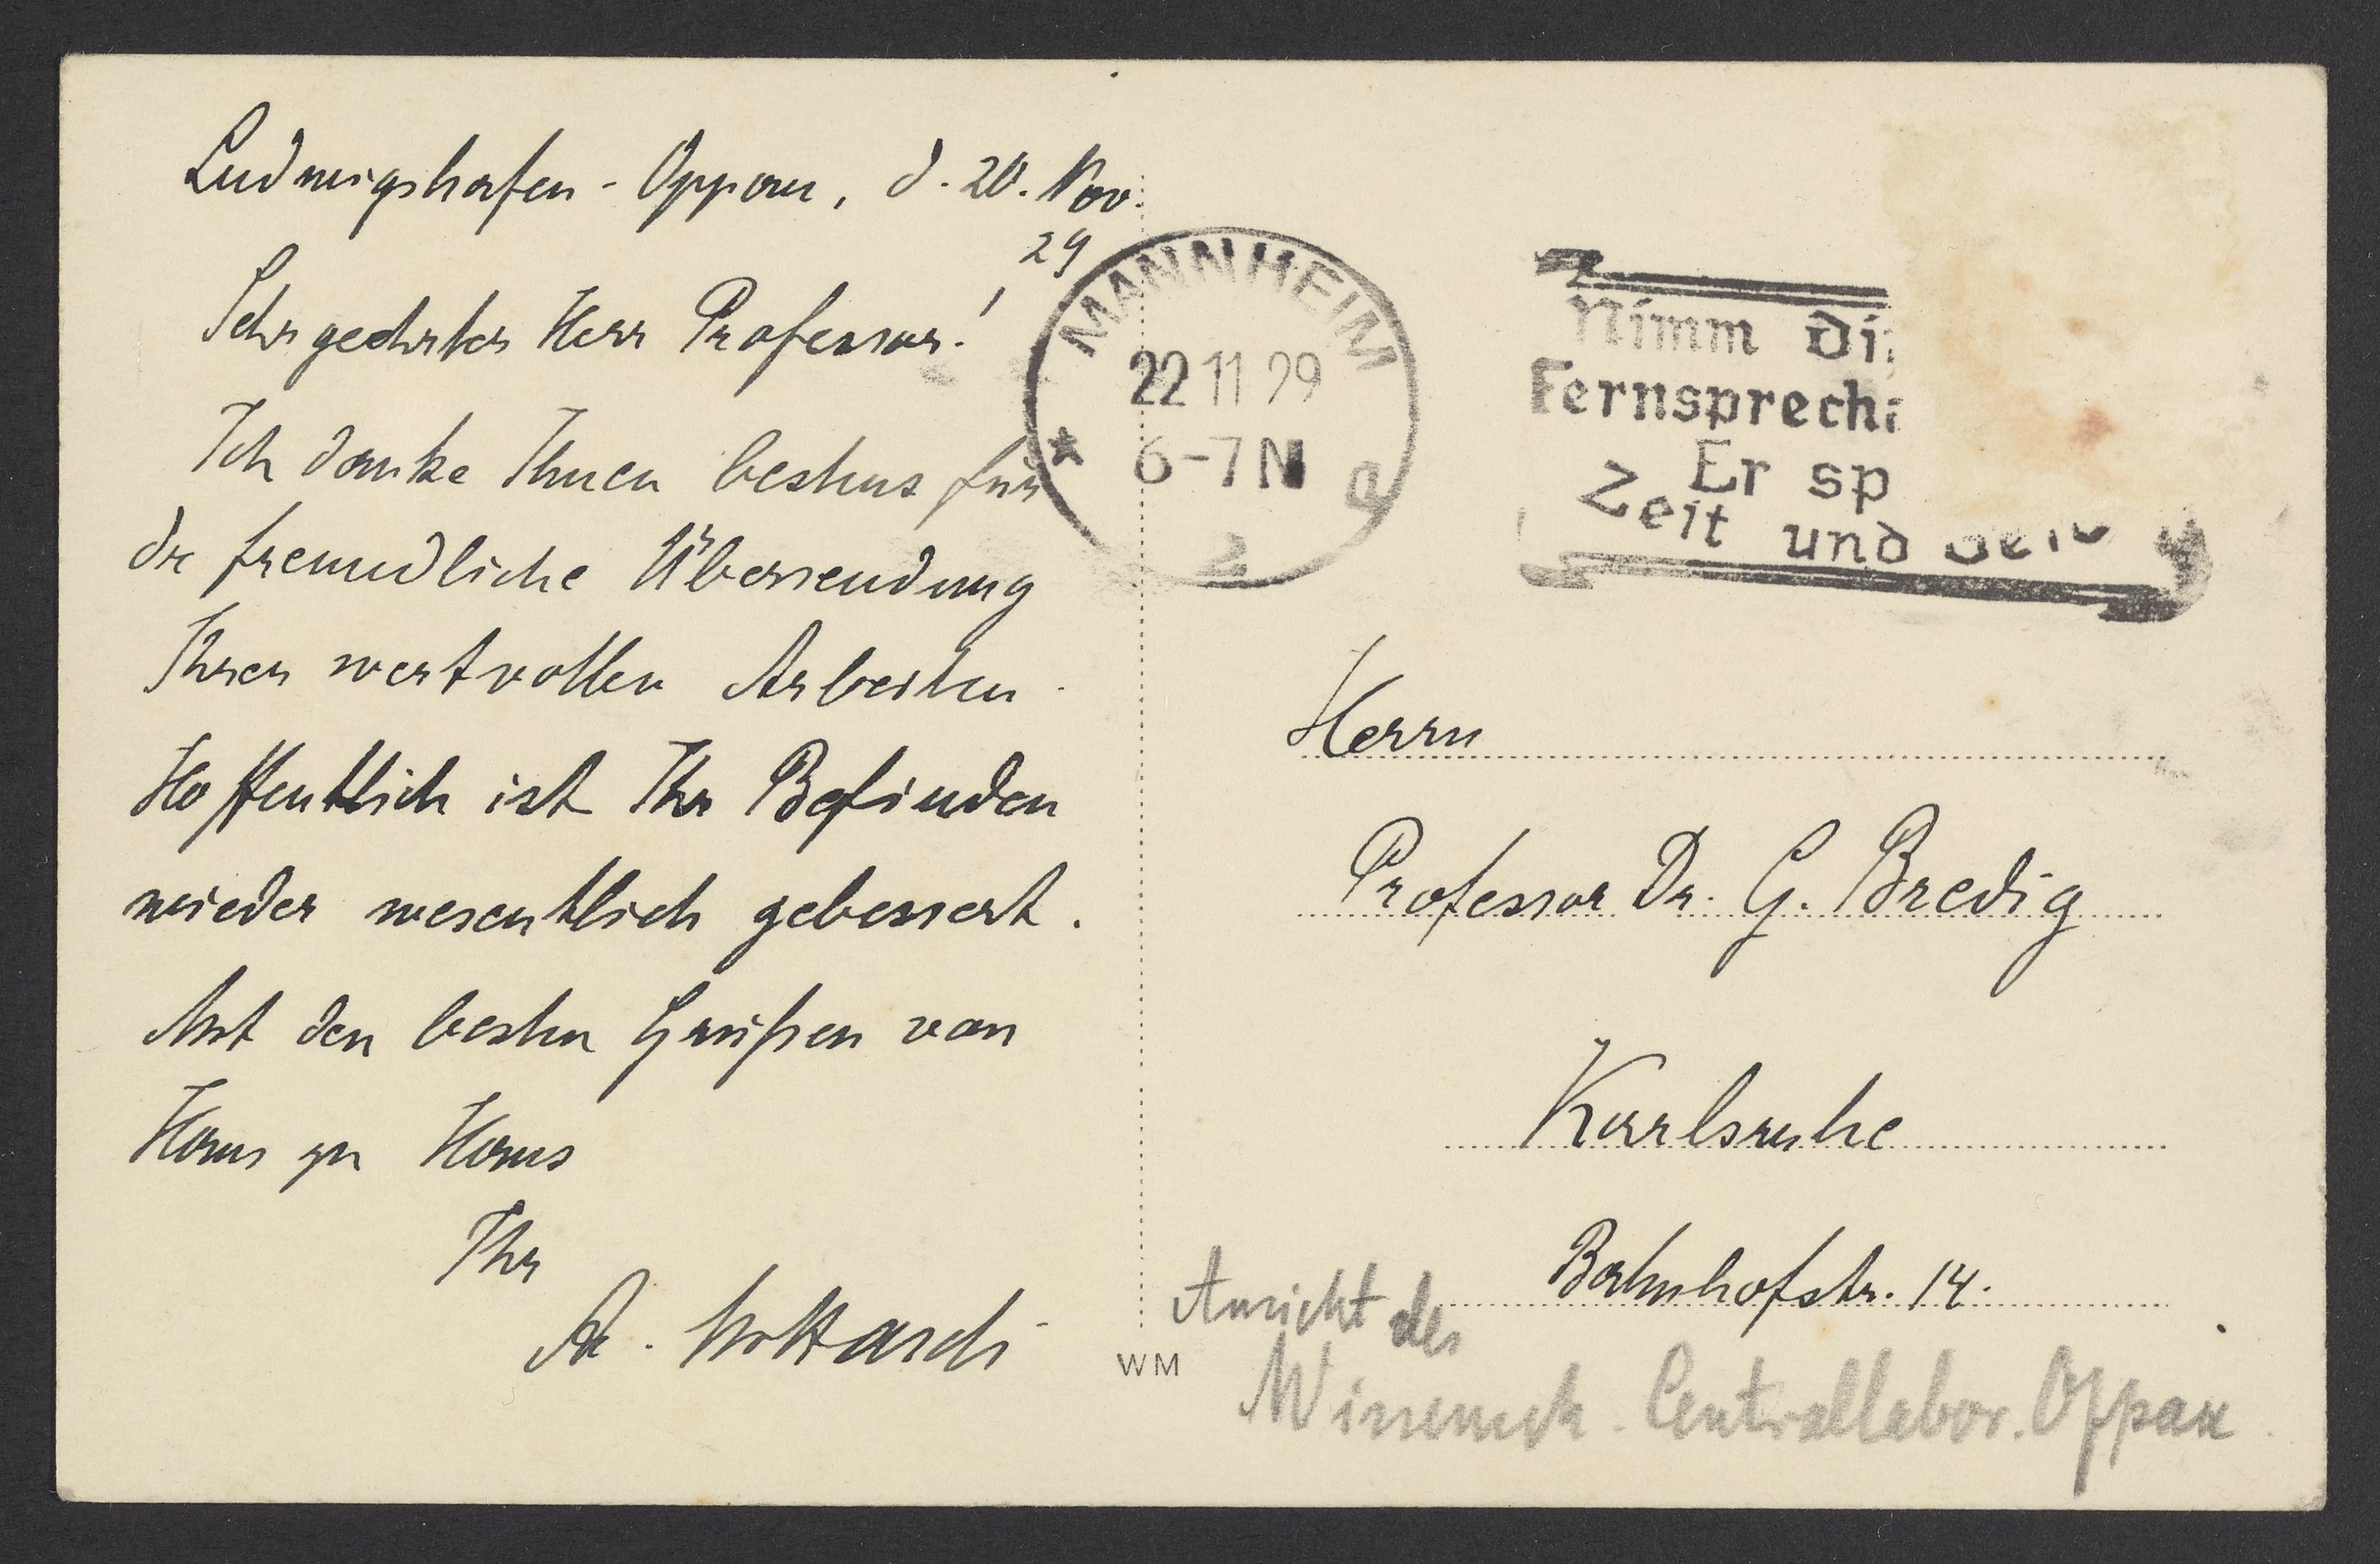 Ludwigshafen - Oppau, d. 20. Nov.
29
Sehr geehrter Herr Professor!
Ich danke Ihnen bestens für
die freundliche Übersendung
Ihrer wertvollen Arbeiten.
Hoffentlich ist Ihr Befinden
wieder wesentlich gebessert.
Mit den besten Grüßen von
Haus zu Haus
Ihr
A. Mittasch
MANNHEIM
22 11 29
* 6-7 N a
2
Nimm di
Fernsprech
Er sp
Zeit und Geld
Herrn
Professor Dr. G. Bredig
Karlsruhe
Bahnhofstr. 14.
WM
Ansicht des
Wissensch. Centrallabor. Oppau